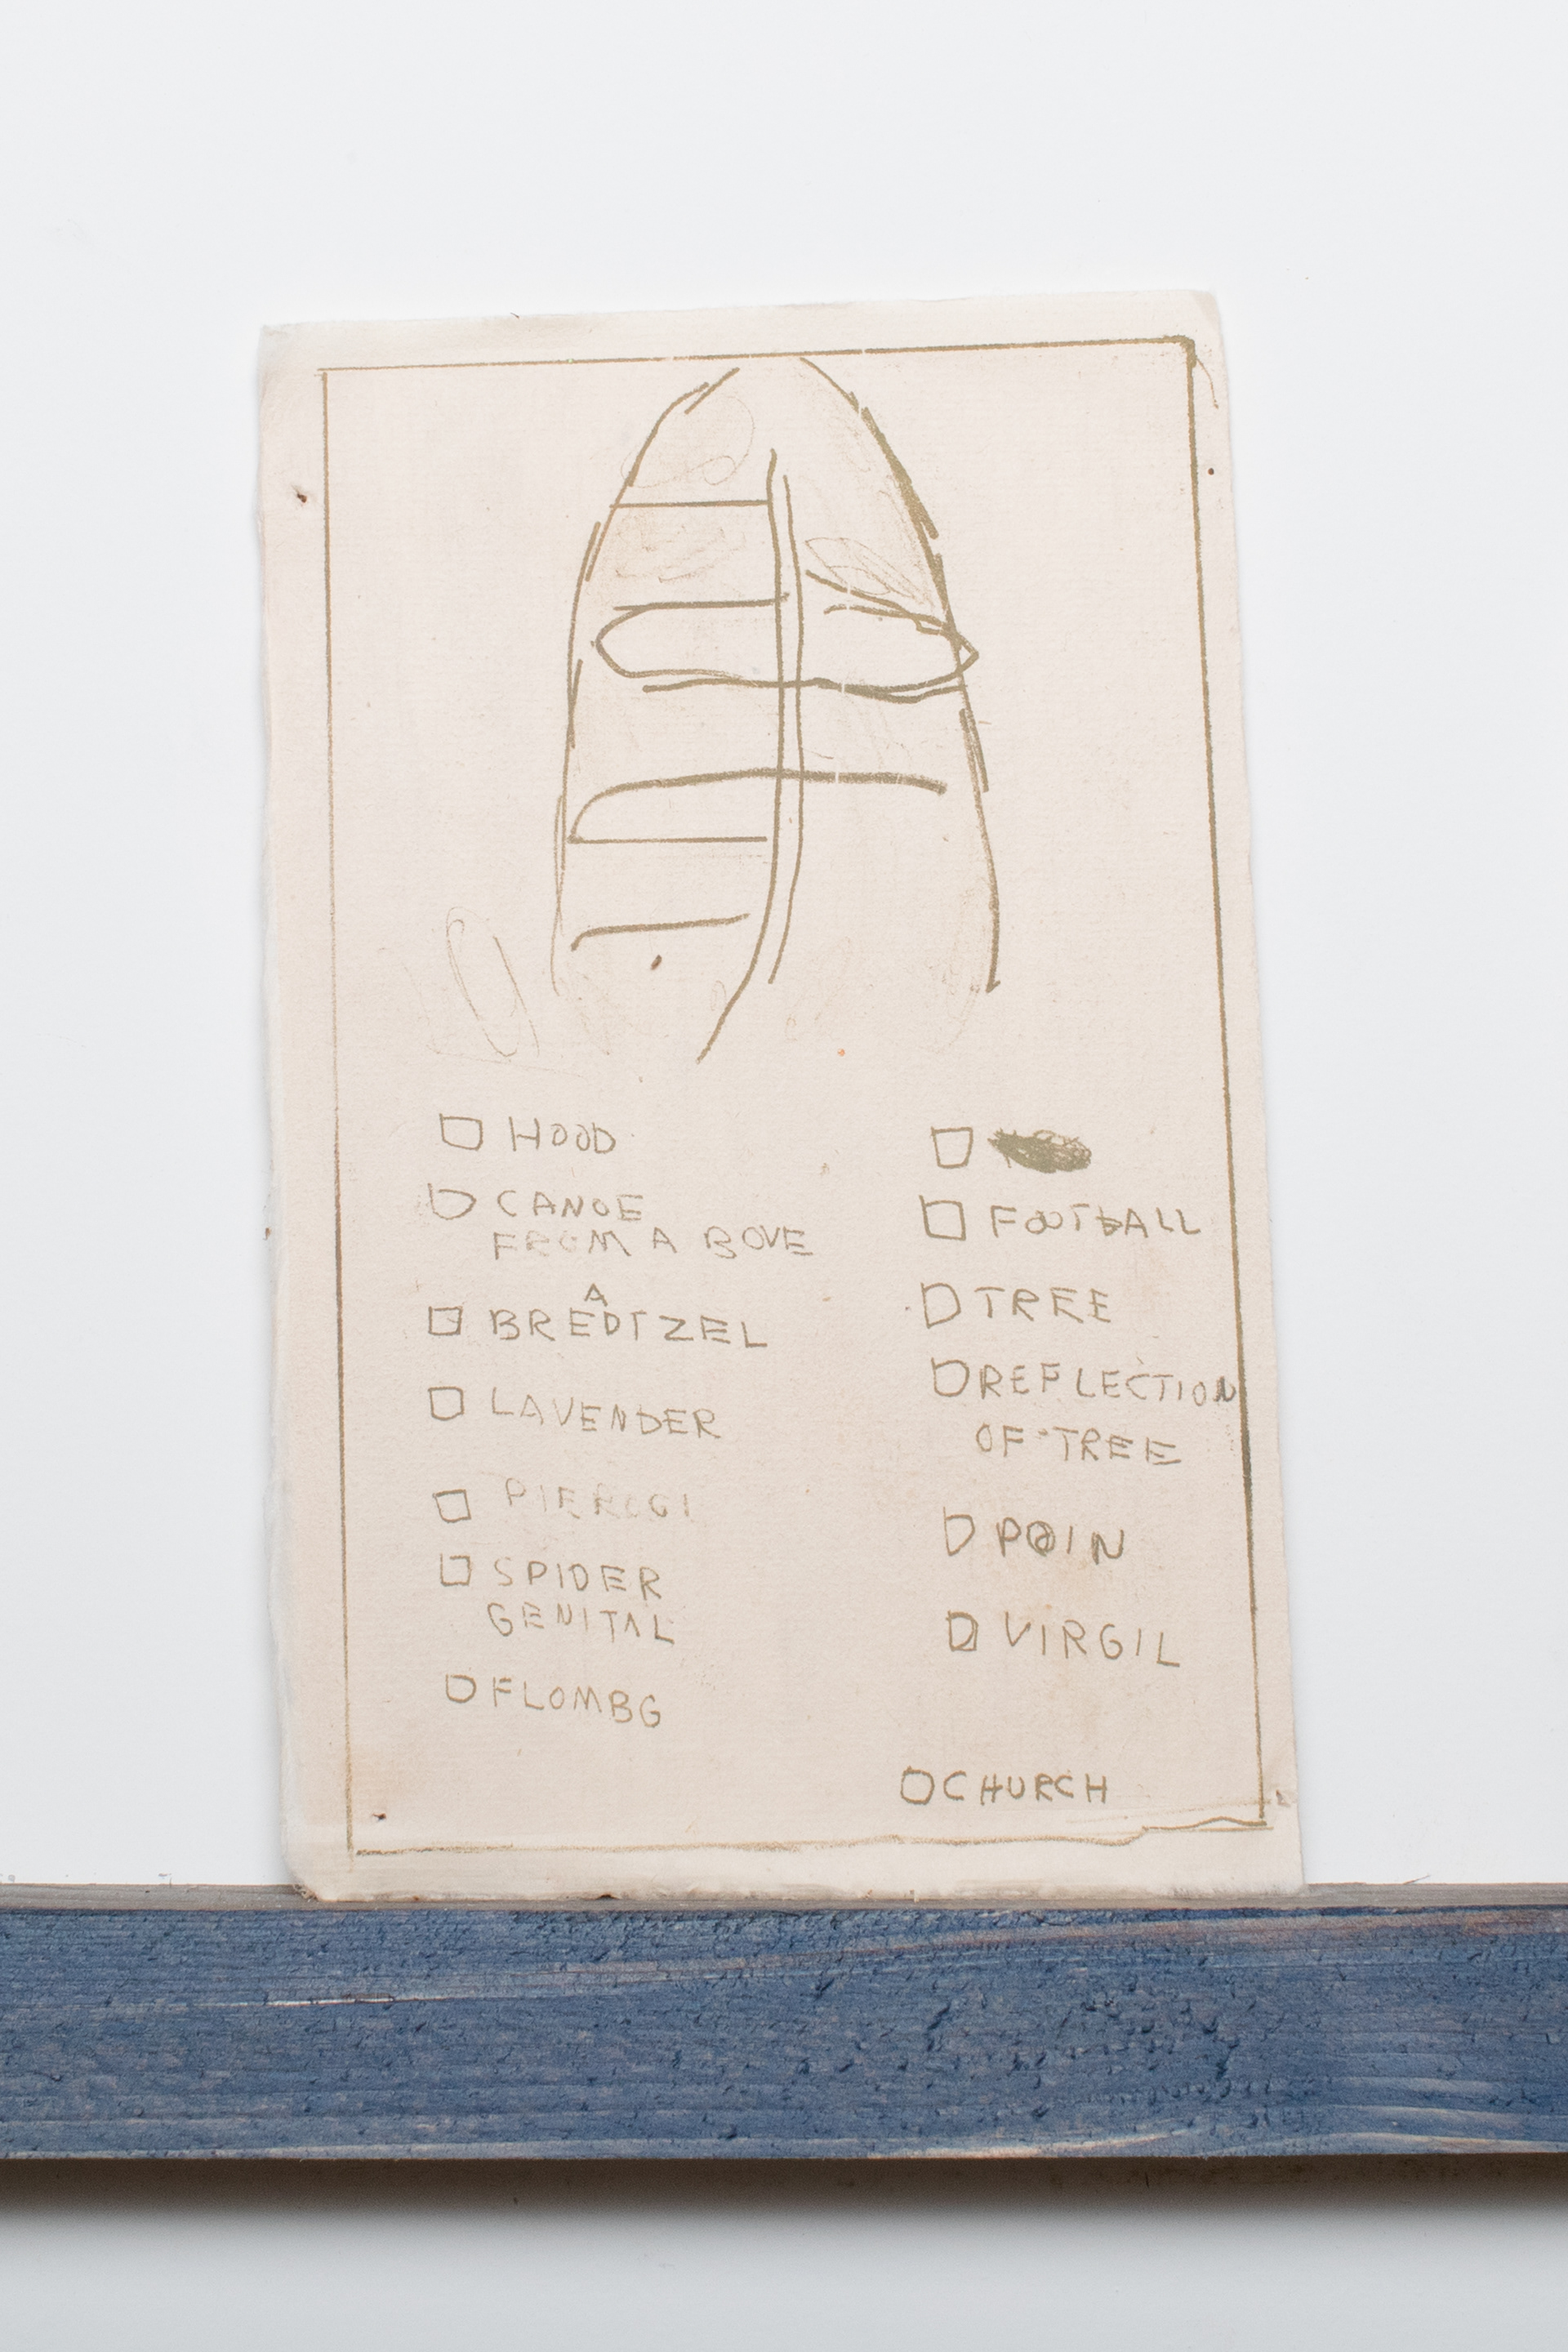 ☐ HOOD
☐ CANOE
FROM A BOVE
A
☐ BREDTZEL
☐ LAVENDER
☐ PIEROGI
☐ SPIDER
GENITAL
☐ FLOMBG
☐
☐ FOOTBALL
☐ TREE
☐ REFLECTION
OF TREE
☐ POIN
☐ VIRGIL
☐ CHURCH